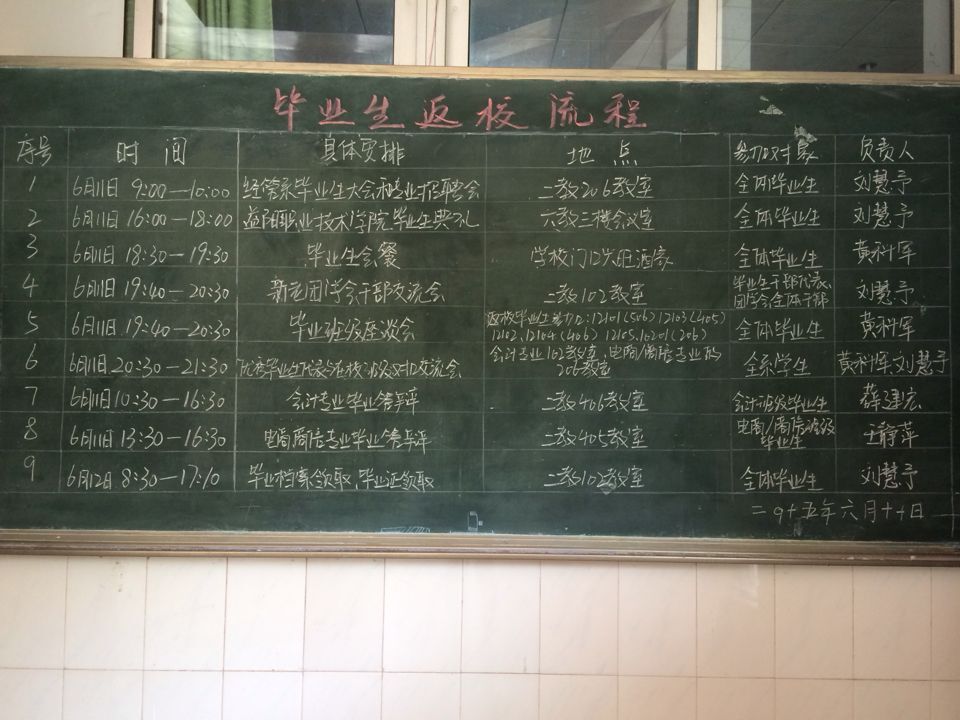 毕业生返校流程
序号 时间 具体安排 地点 参加对象 负责人
1 6月11日 9:00—10:00 经管系毕业生大会和专业招聘会 二教206教室 全体毕业生 刘慧予
2 6月11日 16:00—18:00 益阳职业技术学院毕业生典礼 六教三楼会议室 全体毕业生 刘慧予
3 6月11日 18:30—19:30 毕业生会餐 学校门口兴旺酒家 全体毕业生 黄科军
4 6月11日 19:40—20:30 新老团学会干部交流会 二教102教室 毕业生干部代表、
团学会全体干部 刘慧予
5 6月11日 19:40—20:30 毕业班级座谈会 返校毕业生参加:12101(506) 12103(405)
12102、12104(406) 12105、16201(206) 全体毕业生 黄科军
6 6月11日 20:30—21:30 优秀毕业生代表与在校班级对口交流会 会计专业102教室,电商/商信专业
206教室 全系学生 黄科军 刘慧予
7 6月11日 10:30—16:30 会计专业毕业答辩 二教406教室 会计班级毕业生 薛建宏
8 6月11日 13:30—16:30 电商商信专业毕业答辩 二教405教室 电商/商信班级
毕业生 王静萍
9 6月12日 8:30—17:10 毕业档案领取,毕业证领取 二教102教室 全体毕业生 刘慧予
二〇十五年六月十一日